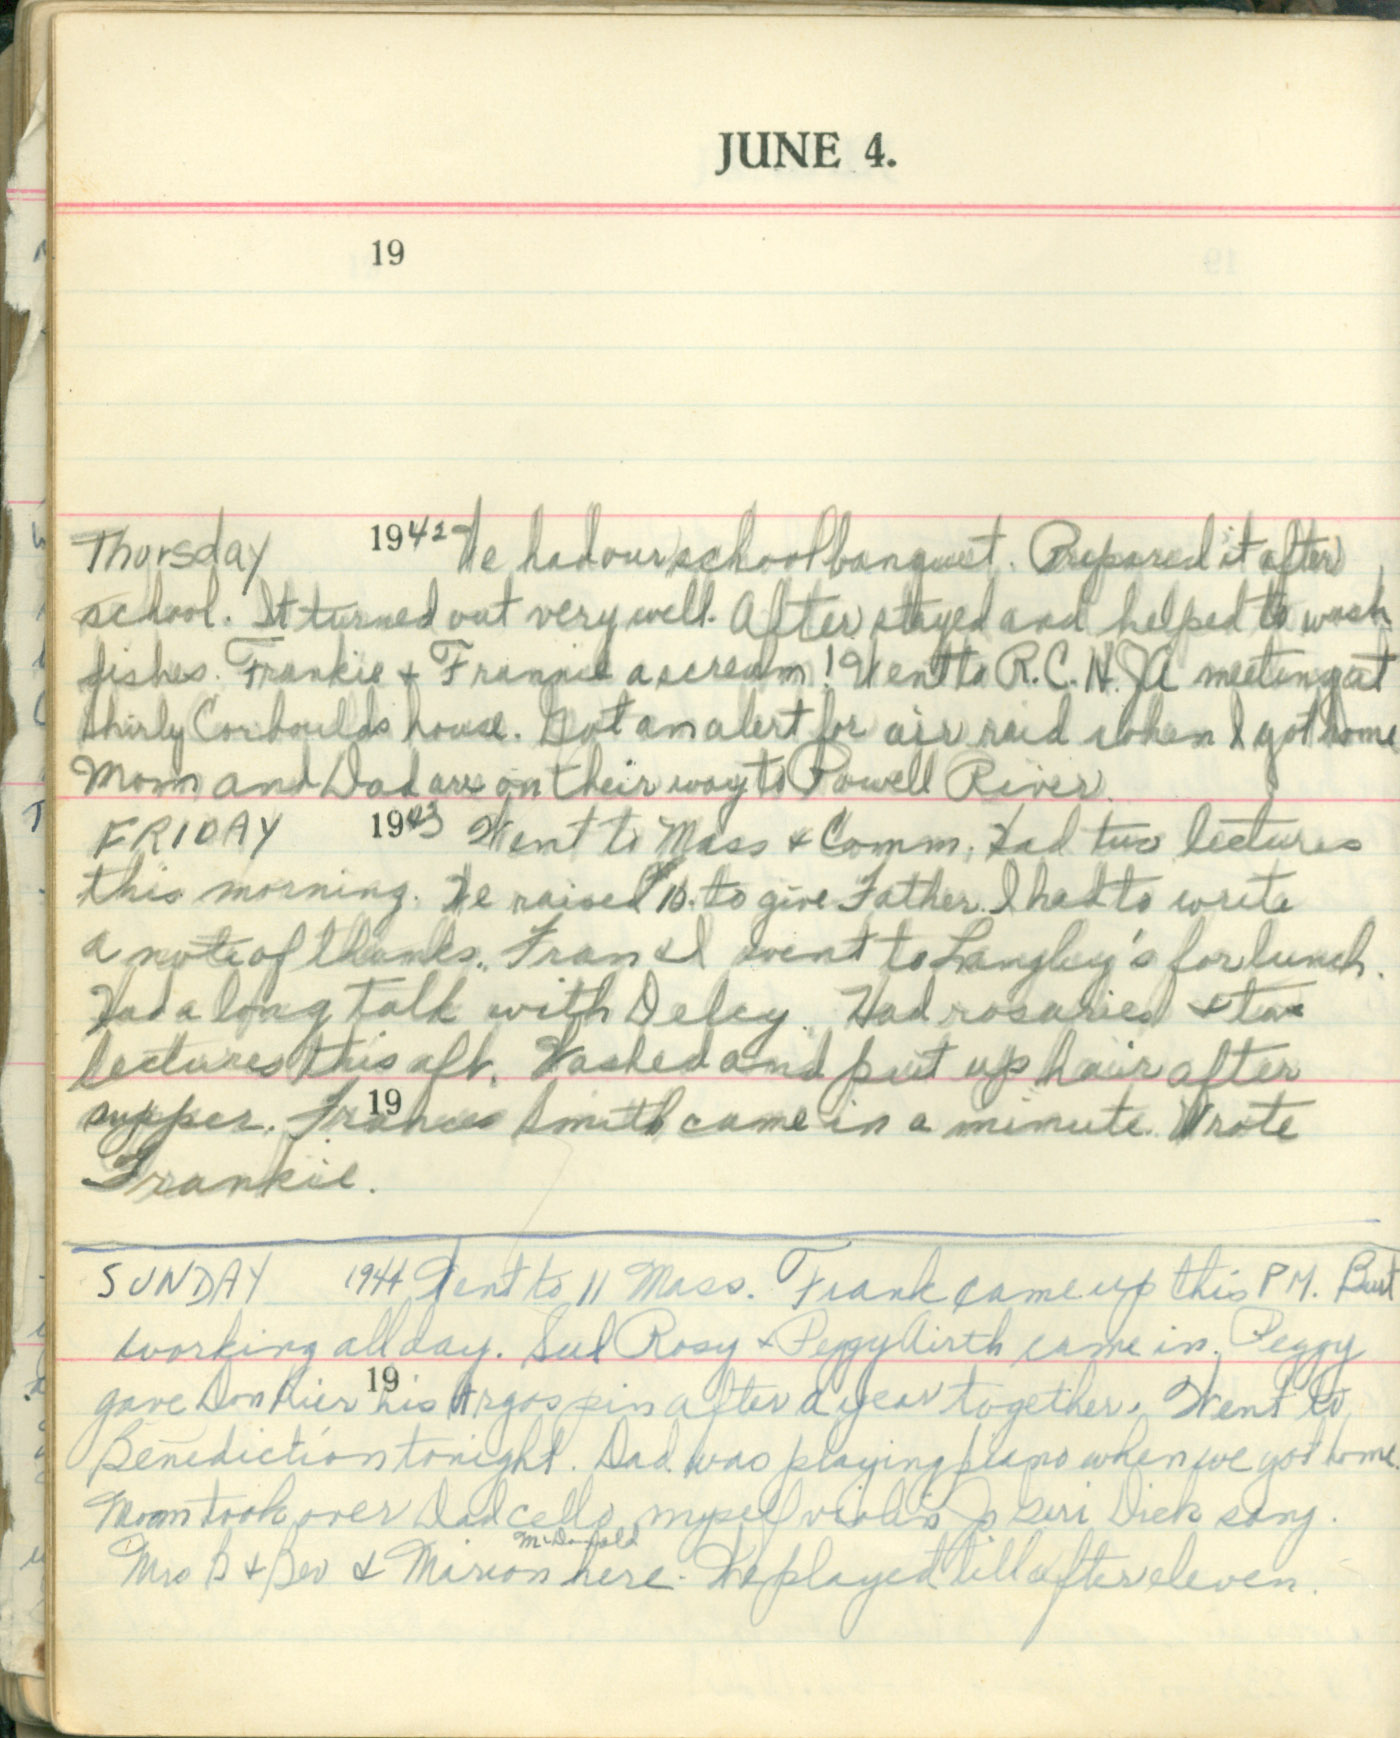 JUNE 4.
19
Thursday 1942 We had our school banquet. Prepared it after
school. It turned out very well. After stayed and helped to wash
dishes. Frankie + Frannie a scream! Went to R.C.N.JA meeting at
Shirly Corbould's house. Got an alert for air raid when I got home
Mom and Dad are on their way to Powell River.
FRIDAY 1943 Went to Mass + Comm. Had two lectures
this morning. We raised 10. to give Father. I had to write
a note of thanks. Fran & I went to Langley's for lunch.
Had a long talk with Delcy. Had rosaries + two
lectures this aft. Washed and put up hair after
supper. Frances Smith came in a minute. Wrote
19
Frankie.
SUNDAY 1944 Went to 11 Mass. Frank came up this P.M. Burt
working all day. Rosy + Peggy Airth came in. Peggy
gave Don his Argos pin after a year together. Went to
19
Benediction tonight. Dad was playing piano when we got home.
Mom took over Dad cello, myself violin Geri Dick sang.
McDonald
Mrs B + Bev & Marion here. We played till after eleven.